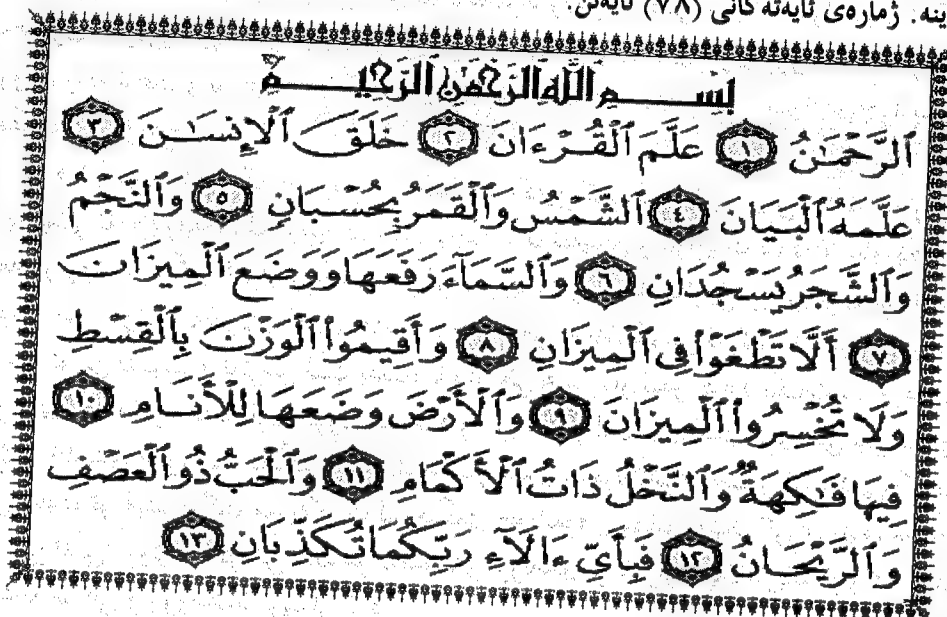 ینە. ژمارەی ئایەتەکانی (٧٨) ئایەتن.
بِسْمِ ٱللَّهِ ٱلرَّحْمَٰنِ ٱلرَّحِيمِ
ٱلرَّحْمَٰنُ ١ عَلَّمَ ٱلْقُرْءَانَ ٢ خَلَقَ ٱلْإِنسَٰنَ ٣
عَلَّمَهُ ٱلْبَيَانَ ٤ ٱلشَّمْسُ وَٱلْقَمَرُ بِحُسْبَانٍ ٥ وَٱلنَّجْمُ
وَٱلشَّجَرُ يَسْجُدَانِ ٦ وَٱلسَّمَآءَ رَفَعَهَا وَوَضَعَ ٱلْمِيزَانَ
٧ أَلَّا تَطْغَوْا۟ فِى ٱلْمِيزَانِ ٨ وَأَقِيمُوا۟ ٱلْوَزْنَ بِٱلْقِسْطِ
وَلَا تُخْسِرُوا۟ ٱلْمِيزَانَ ٩ وَٱلْأَرْضَ وَضَعَهَا لِلْأَنَامِ ١٠
فِيهَا فَٰكِهَةٌ وَٱلنَّخْلُ ذَاتُ ٱلْأَكْمَامِ ١١ وَٱلْحَبُّ ذُو ٱلْعَصْفِ
وَٱلرَّيْحَانُ ١٢ فَبِأَىِّ ءَالَآءِ رَبِّكُمَا تُكَذِّبَانِ ١٣